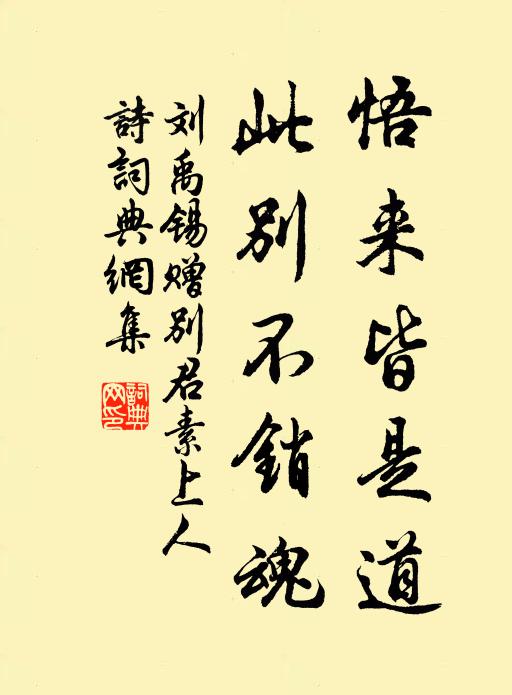 悟来皆是道
此别不銷魂
刘禹锡赠别君素上人
詩詞典網集
詞典
网印